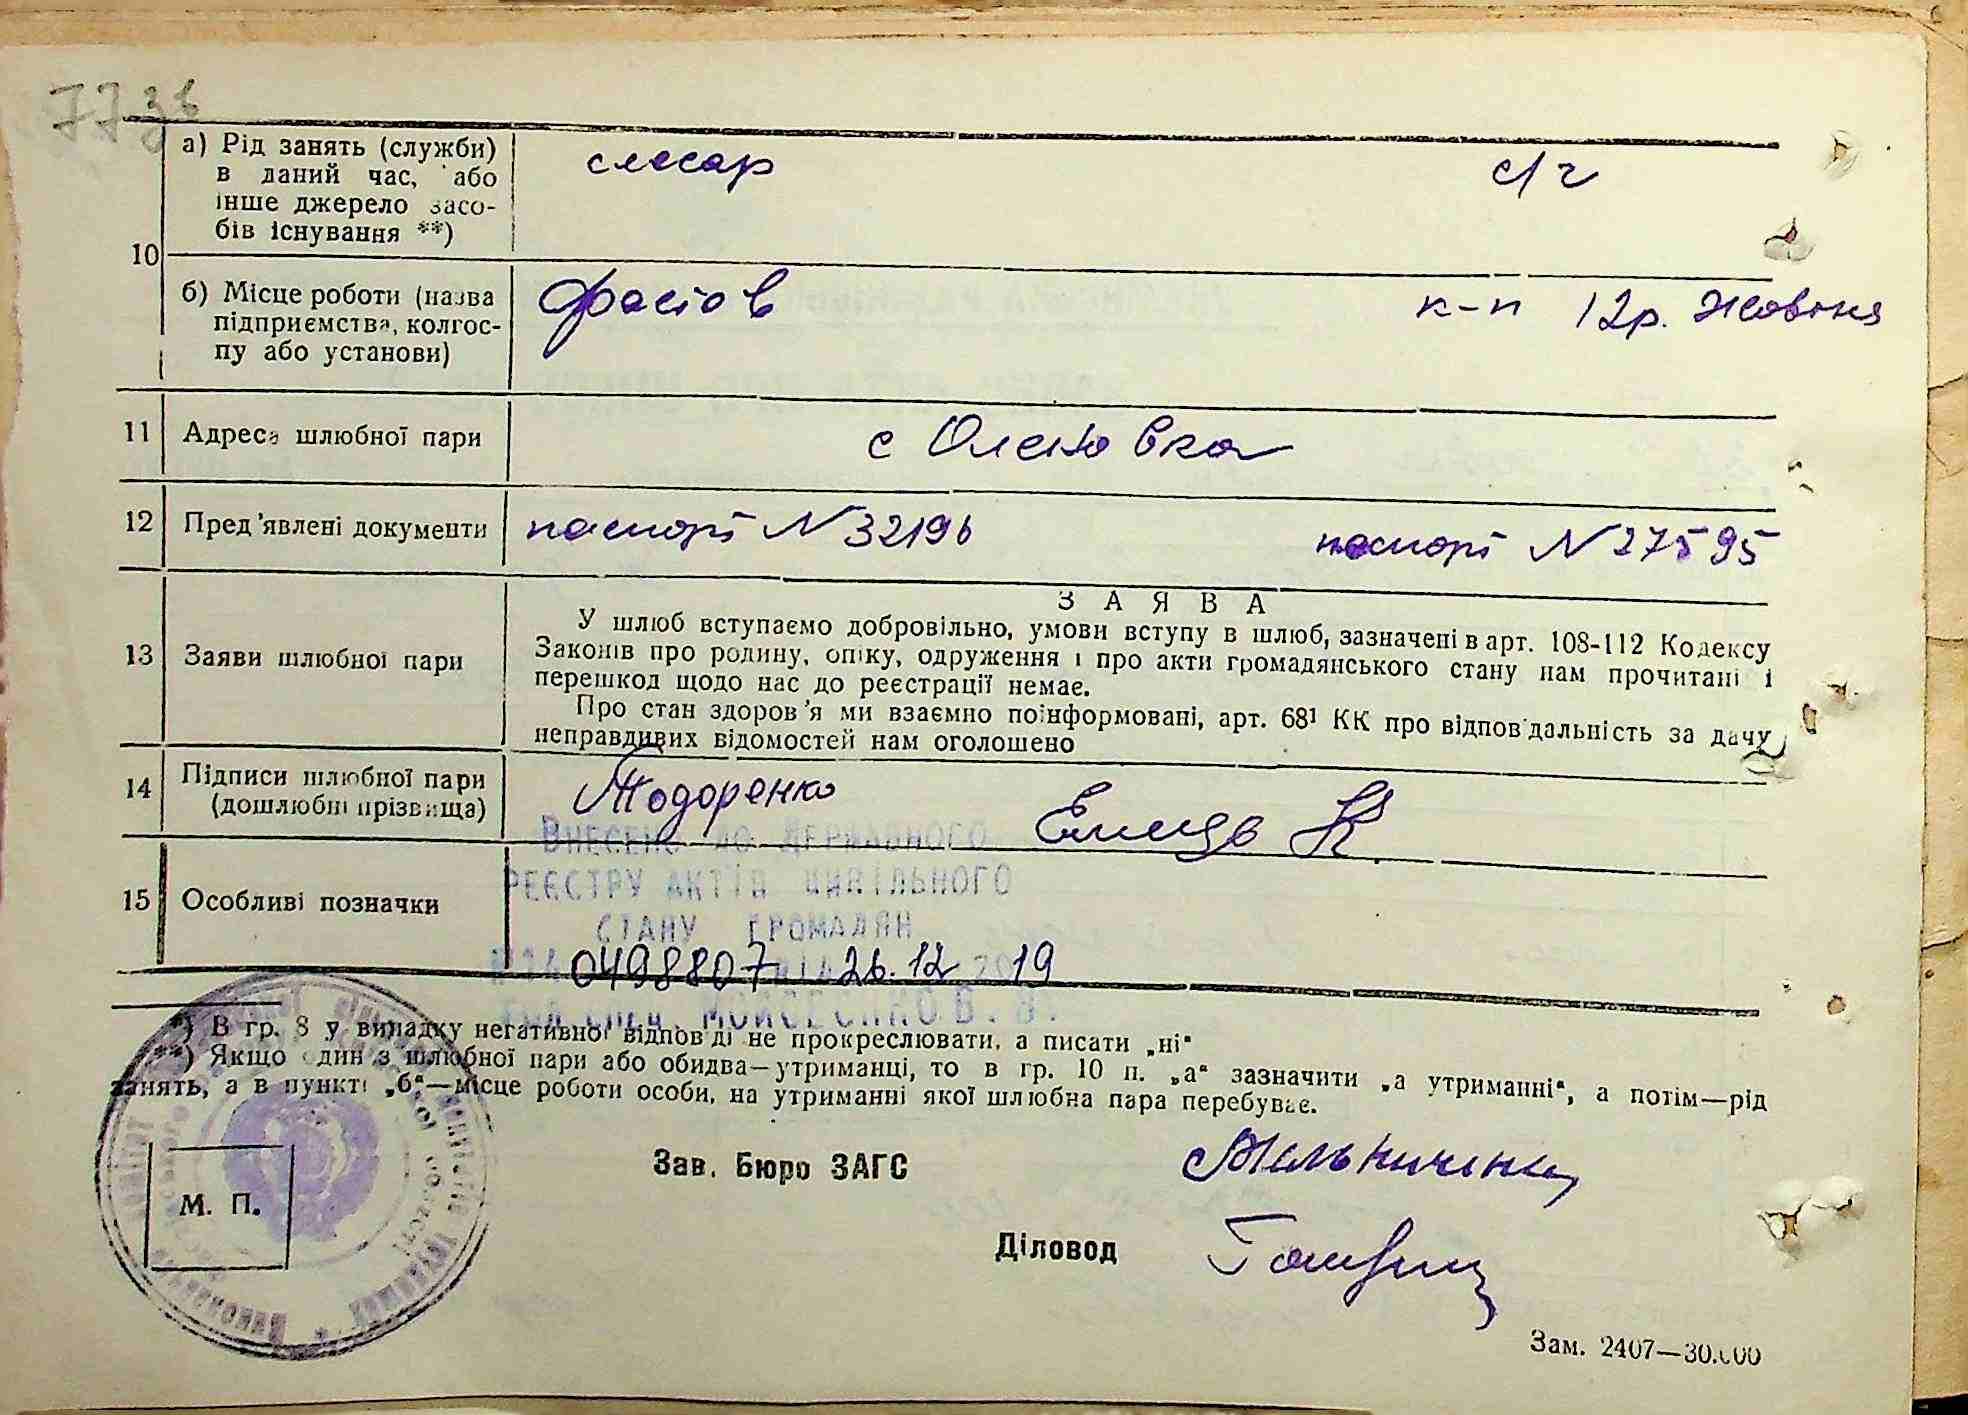 77зв
а) Рід занять (служби) слюсар с/г
в даний час, або
інше джерело засо-
бів існування **)
10
б) Місце роботи (назва Фастів к-п 12р. Жовтня
підприємства, колгос-
пу або установи)
11 Адреса шлюбної пари с Оленовка
12 Пред'явлені документи паспорт N 32196 паспорт N 27595
З А Я В А
У шлюб вступаємо добровільно, умови вступу в шлюб, зазначені в арт. 108-112 Кодексу
13 Заяви шлюбної пари Законів про родину, опіку, одруження і про акти громадянського стану нам прочитані і
перешкод щодо нас до реєстрації немає.
Про стан здоров'я ми взаємно поінформовані, арт. 68¹ КК про відповідальність за дачу
неправдивих відомостей нам оголошено
14 Підписи шлюбної пари Тодоренко
(дошлюбні прізвища) Емець К.
Внесено до Державного
реєстру актів цивільного
15 Особливі позначки
стану громадян
0498807 від 26.12 2019
Моисеєнко В. В.
*) В гр. 8 у випадку негативної відповіді не прокреслювати, а писати „ні“
**) Якщо один з шлюбної пари або обидва—утриманці, то в гр. 10 п. „а“ зазначити „а утриманні“, а потім—рід
занять, а в пункті „б“—місце роботи особи, на утриманні якої шлюбна пара перебуває.
Зав. Бюро ЗАГС Мельниченко
М. П.
Діловод
Зам. 2407—30.000